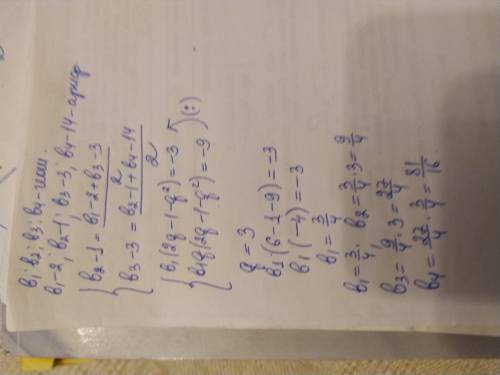 b₁; b₂; b₃; b₄ - геом.
b₁-2; b₂-1; b₃-3; b₄-14 - ариф
{ b₂-1 = (b₁-2+b₃-3)/2
{ b₃-3 = (b₂-1+b₄-14)/2
{ b₁(2q-1-q²) = -3
{ b₁q(2q-1-q²) = -9 ) (:)
q = 3
b₁(6-1-9) = -3
b₁(-4) = -3
b₁ = 3/4
b₁ = 3/4; b₂ = 3/4 · 3 = 9/4
b₃ = 9/4 · 3 = 27/4
b₄ = 27/4 · 3/4 = 81/16